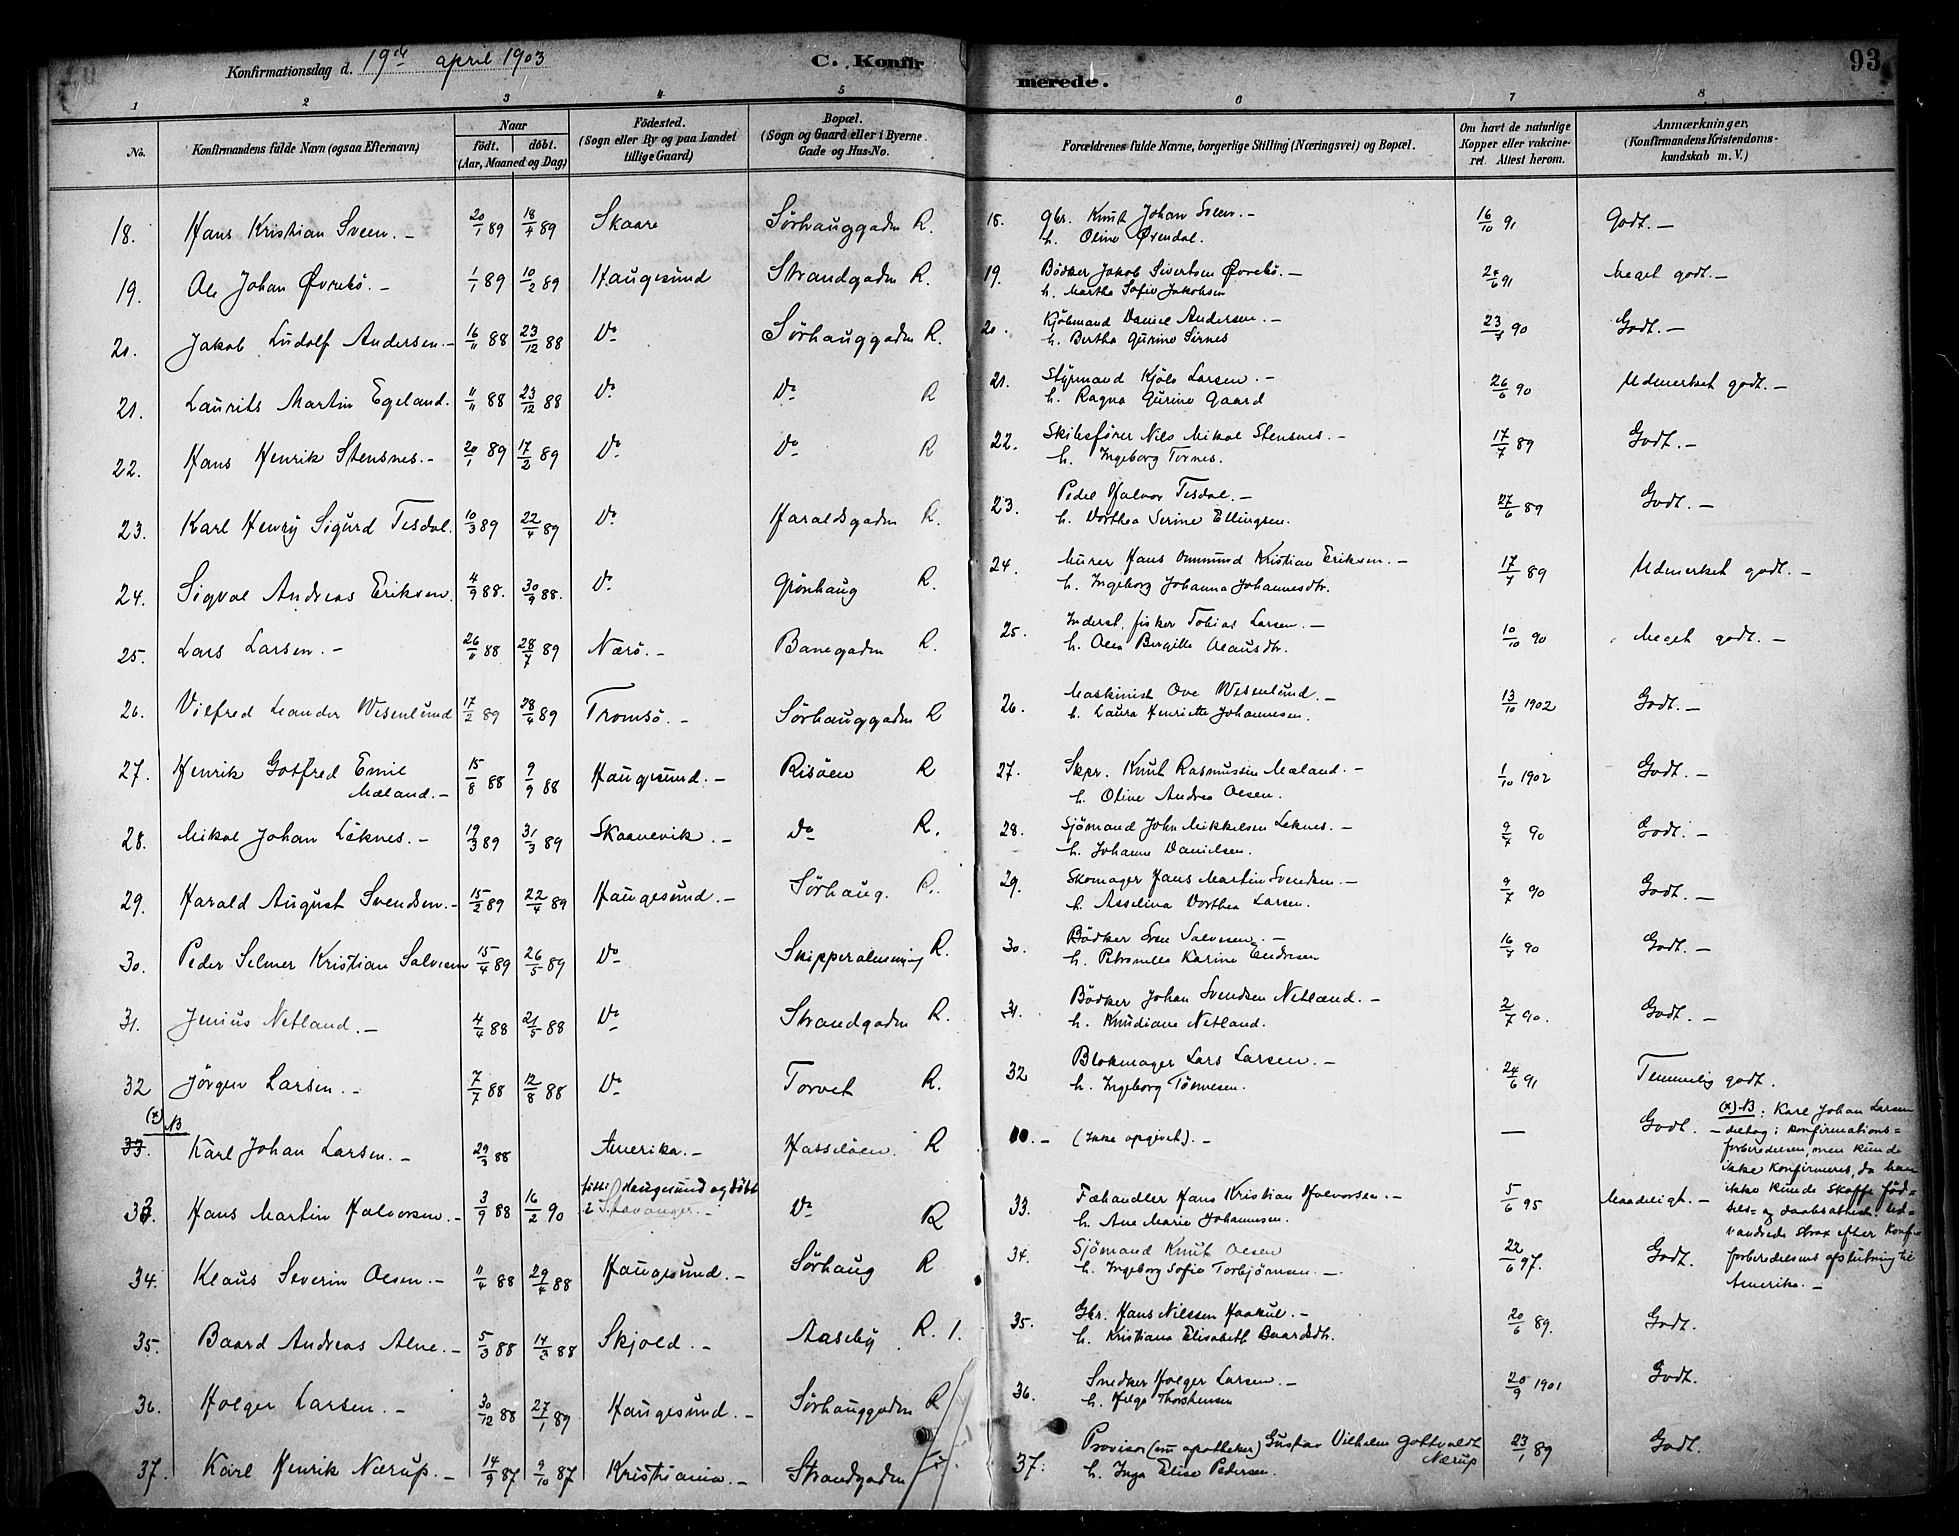 Konfirmationsdag d. 19de april 1903
C. Konfirmerede.
93
1 2 3 4 5 6 7 8
No.
Konfirmandens fulde Navn (ogsaa Efternavn)
Naar
født. døbt.
(Aar, Maaned og Dag)
Fødested.
(Sogn eller By og paa Landet
tillige Gaard)
Bopæl.
(Sogn og Gaard eller i Byerne
Gade og Hus-No.
Forældrenes fulde Navne, borgerlige Stilling (Næringsvei) og Bopæl.
Om havt de naturlige
Kopper eller vakcine-
ret. Attest herom.
Anmærkninger.
(Konfirmandens Kristendoms-
kundskab m. V.)
18. Hans Kristian Sveen. – 20/1 89 18/4 89 Skaare Sørhauggaden R. 18. gbr. Knut Johan Sveen. – 16/10 91 Godt. –
h. Oline Øvendal.
19. Ole Johan Øvrebö. – 1/1 89 10/2 89 Haugesund Strandgaden R. 19. Bödker Jakob Sivertsen Øvrebö. – 24/6 91 Meget godt. –
h. Martha Sofie Jakobsen
20. Jakob Ludolf Andersen. – 16/11 88 23/12 88 Do Sörhauggaden R. 20. Kjöbmand Daniel Andersen. – 23/7 90 Godt. –
h. Bertha Gurine Sirnes
21. Laurits Martin Egeland. 11/11 88 23/12 88 Do Do R 21. Styrmand Kjöls Larsen. – 26/6 90 Udmerket godt. –
h. Ragna Gurine Gaard
22. Hans Henrik Stensnes. – 20/1 89 17/2 89 Do Do R 22. Skibsförer Nils Mikal Stensnes. – 17/7 89 Godt. –
h. Ingeborg Tornes.
23. Karl Henry Sigurd Tesdal. 10/3 89 22/4 89 Do Haraldsgaden R. 23. Peder Halvor Tesdal. – 27/6 89 Godt. –
h. Dorthea Serine Ellingsen.
24. Sigval Andreas Eriksen. 4/9 88. 30/9 88. Do Grönhaug R. 24. Murer Hans Ommund Kristian Eriksen. – 17/7 89 Udmerket godt. –
h. Ingeborg Johanna Johannesdtr.
25. Lars Larsen. – 26/11 88 28/7 89 Nærö. – Banegaden R. 25. Inderst, fisker Tobias Larsen. – 10/10 90 Meget godt. –
h. Olea Bergitte Olausdtr.
26. Vilfred Leander Wesenlund 17/2 89 28/4 89 Tromsö. – Sörhauggaden R 26. Maskinist Ove Wesenlund. – 13/10 1902 Godt. –
h. Laura Henriette Johannesen.
27. Henrik Gotfred Emil 15/8 88 9/9 88 Haugesund. – Risöen R 27. Skpr. Knut Rasmussen Mæland. – 1/10 1902 Godt. –
Mæland. – h. Oline Andrea Olsen.
28. Mikal Johan Leknes. – 19/3 89 31/3 89 Skaanevik. – Do R. 28. Sjömand John Mikkelsen Leknes. – 9/7 90 Godt. –
h. Johanne Danielsen.
29. Harald August Svendsen. – 15/2 89 22/4 89 Haugesund. – Sörhaug. R. 29. Skomager Hans Martin Svendsen. – 9/7 90 Godt. –
h. Asselina Dorthea Larsen.
30. Peder Selmer Kristian Salvesen 15/4 89 26/5 89 Do R. 30. Bödker Sven Salvesen. – 16/7 90 Godt. –
h. Petronelle Karine Endresen
31. Jenius Netland. – 4/4 88 21/5 88 Do Strandgaden R. 31. Bödker Johan Svendsen Netland. – 2/7 90. Godt. –
h. Knudiane Netland.
32 Jörgen Larsen. – 7/7 88 12/8 88 Do Torvet R. 32 Blokmager Lars Larsen. – 24/6 91 Temmelig godt.
h. Ingeborg Tönnesen.
(x) NB
33. Karl Johan Larsen. – 29/3 88 Amerika. – Hasselöen. R – (ikke opgivet). – — Godt. –
(x) NB: Karl Johan Larsen
deltog i konfirmations=
forberedelsen, men kunde
ikke konfirmeres, da han
ikke kunde skaffe fød=
sels= og daabsattest. Ud=
vandrede strax efter konf=
forberedelsens afslutning til
Amerika. –
33. Hans Martin Halvorsen. – 3/9 88 16/2 90 födt i Haugesund og döbt Do R 33. Fæhandler Hans Kristian Halvorsen. – 5/6 95 Maadeligt. –
i Stavanger. – h. Ane Marie Johannesen.
34. Klaus Severin Olsen. – 11/4 88 29/4 88 Haugesund. – Sörhaug R 34. Sjömand Knut Olsen 22/6 97. Godt.
h. Ingeborg Sofie Torbjörnsen. –
35. Baard Andreas Alne. – 5/3 88 14/3 88 Skjold. – Aaseby R. 1. 35. Gbr. Hans Nilssen Haakul. – 20/6 89. Godt.
h. Kristiana Elisabeth Baardsdtr.
36. Holger Larsen. – 30/12 88 27/1 89 Haugesund. – Sörhauggaden R 36. Snedker Holger Larsen. – 20/9 1901 Godt.
h. Helga Thorstensen
37. Karl Henrik Nærup. – 14/9 87 9/10 87 Kristiania. – Strandgaden 37. Provisor (nu apotheker) Gustav Vilhelm Gottvaldt 23/1 89 Godt.
Nærup
h. Inga Elise Pedersen.